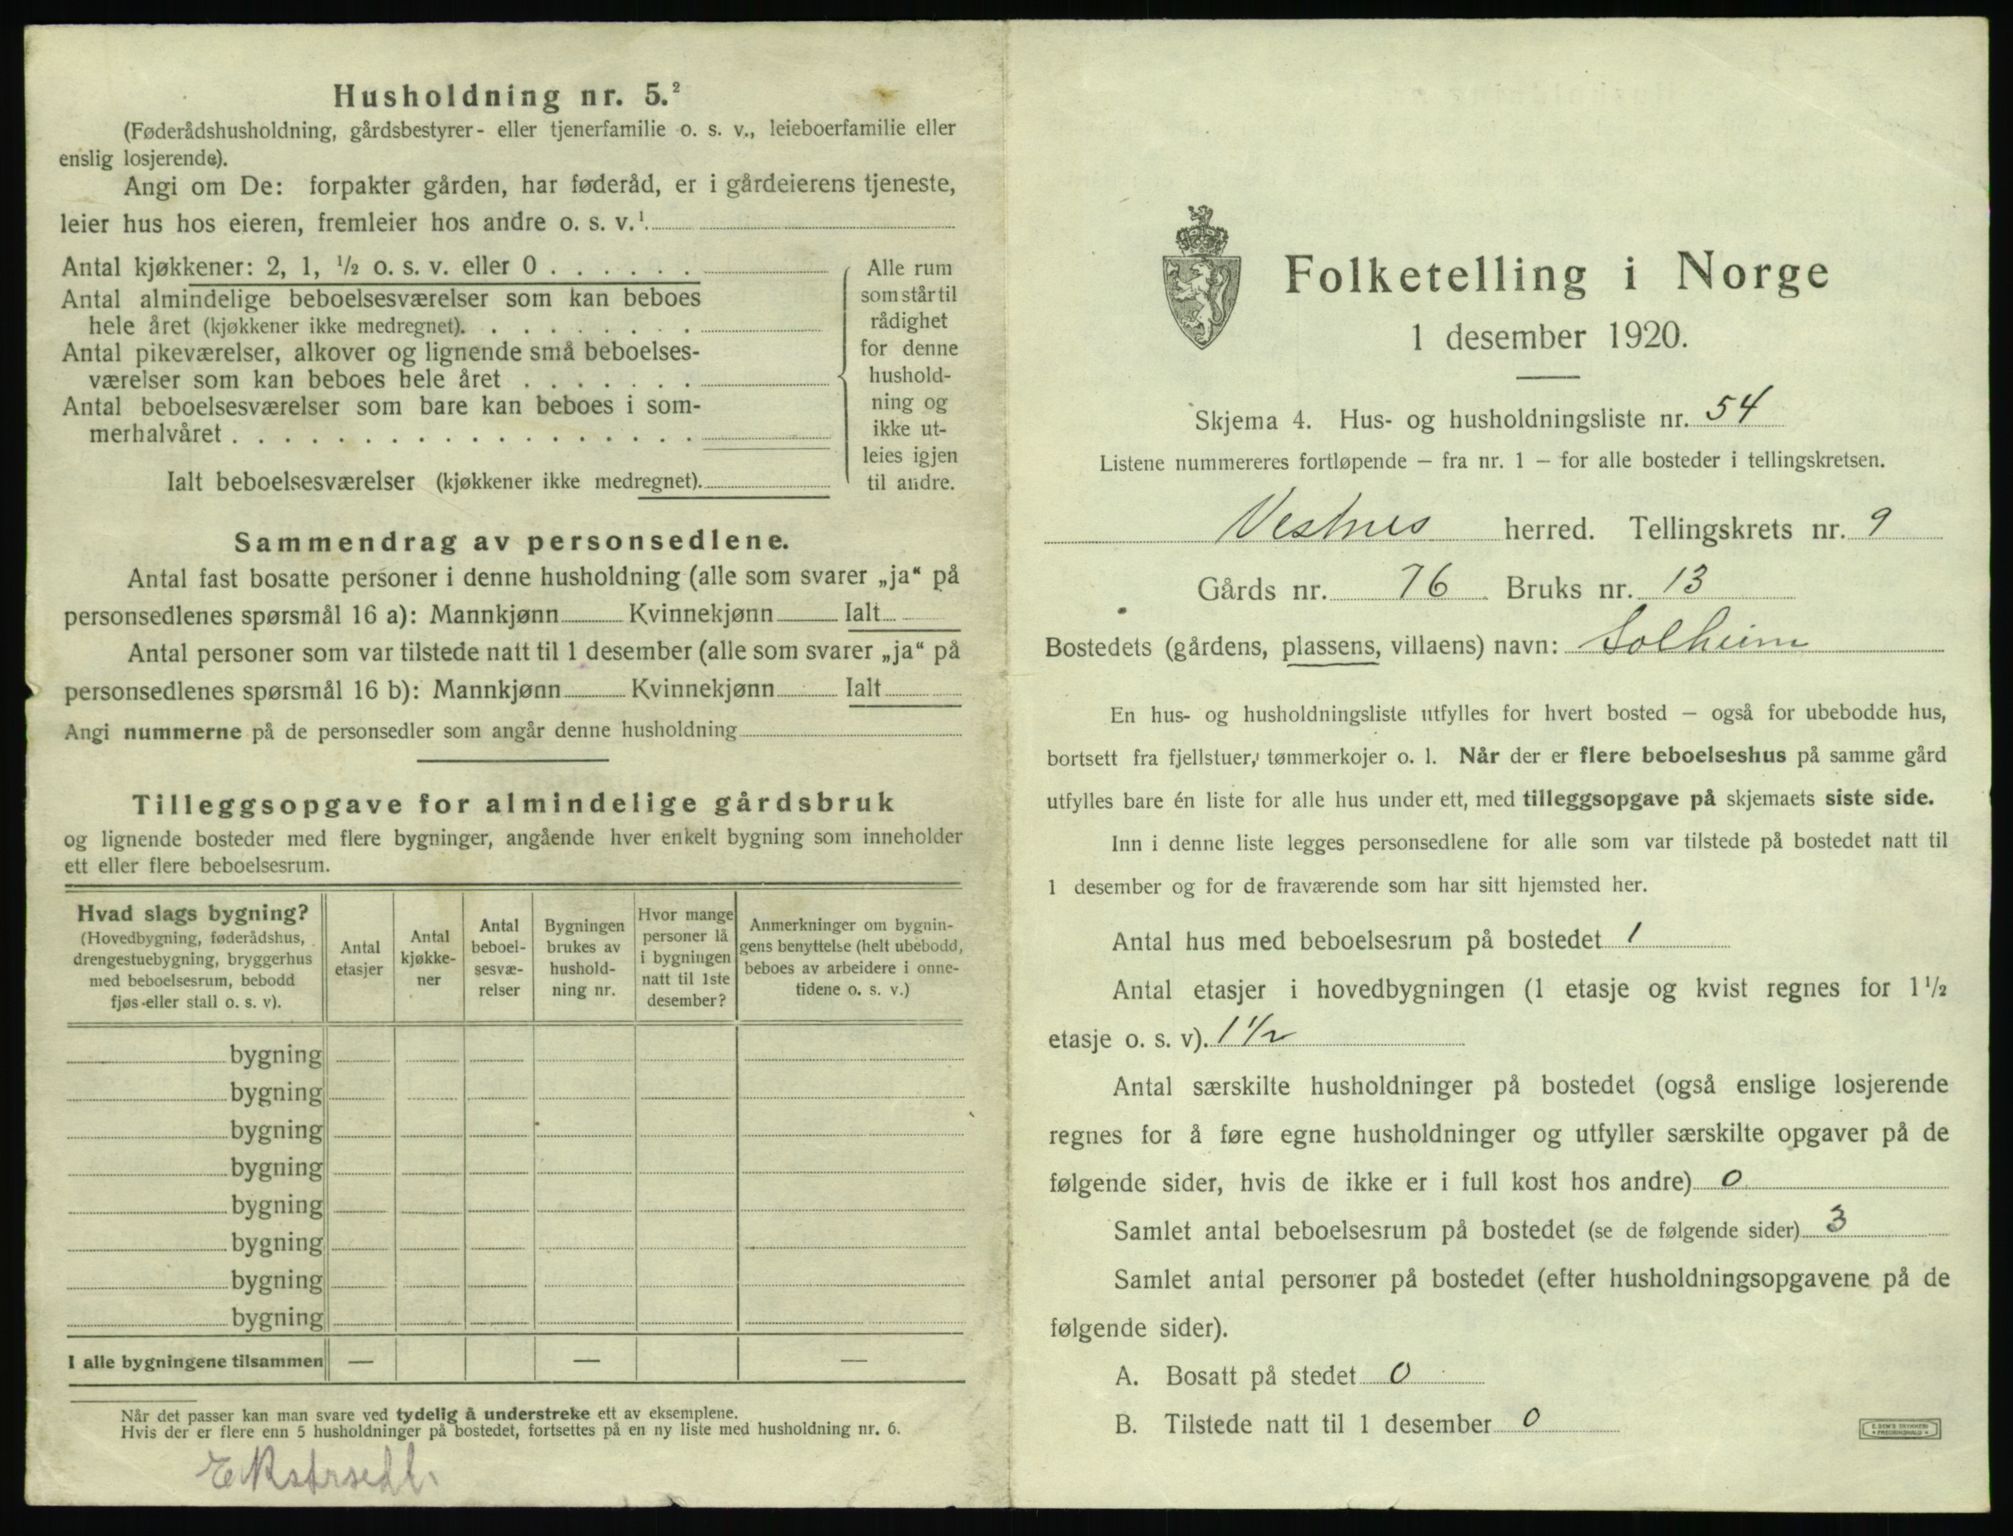 Husholdning nr. 5.²
(Føderådshusholdning, gårdsbestyrer- eller tjenerfamilie o. s. v., leieboerfamilie eller
enslig losjerende).
Angi om De: forpakter gården, har føderåd, er i gårdeierens tjeneste,
leier hus hos eieren, fremleier hos andre o. s. v.¹
Antal kjøkkener: 2, 1, ½ o. s. v. eller 0 . . . . . .
Antal almindelige beboelsesværelser som kan beboes
hele året (kjøkkener ikke medregnet). . . . . . . . .
Antal pikeværelser, alkover og lignende små beboelses-
værelser som kan beboes hele året . . . . . . .
Antal beboelsesværelser som bare kan beboes i som-
merhalvåret . . . . . . . . . . . . . . . . . .
Ialt beboelsesværelser (kjøkkener ikke medregnet).
Alle rum
som står til
rådighet
for denne
hushold-
ning og
ikke ut-
leies igjen
til andre.
Sammendrag av personsedlene.
Antal fast bosatte personer i denne husholdning (alle som svarer „ja“ på
personsedlenes spørsmål 16 a): Mannkjønn Kvinnekjønn Ialt
Antal personer som var tilstede natt til 1 desember (alle som svarer „ja“ på
personsedlenes spørsmål 16 b): Mannkjønn Kvinnekjønn Ialt
Angi nummerne på de personsedler som angår denne husholdning
Tilleggsopgave for almindelige gårdsbruk
og lignende bosteder med flere bygninger, angående hver enkelt bygning som inneholder
ett eller flere beboelsesrum.
Hvad slags bygning?
(Hovedbygning, føderådshus,
drengestuebygning, bryggerhus
med beboelsesrum, bebodd
fjøs eller stall o. s. v).
Antal
etasjer
Antal
kjøkke-
ner
Antal
beboel-
sesvæ-
relser
Bygningen
brukes av
hushold-
ning nr.
Hvor mange
personer lå
i bygningen
natt til 1ste
desember?
Anmerkninger om bygnin-
gens benyttelse (helt ubebodd,
beboes av arbeidere i onne-
tidene o. s. v.)
bygning
bygning
bygning
bygning
bygning
bygning
bygning
bygning
I alle bygningene tilsammen — — —
Når det passer kan man svare ved tydelig å understreke ett av eksemplene.
Hvis der er flere enn 5 husholdninger på bostedet, fortsettes på en ny liste med husholdning nr. 6.
Folketelling i Norge
1 desember 1920.
Skjema 4. Hus- og husholdningsliste nr. 54
Listene nummereres fortløpende – fra nr. 1 – for alle bosteder i tellingskretsen.
Vestnes herred. Tellingskrets nr. 9
Gårds nr. 76 Bruks nr. 13
Bostedets (gårdens, plassens, villaens) navn: Solheim
En hus- og husholdningsliste utfylles for hvert bosted – også for ubebodde hus,
bortsett fra fjellstuer, tømmerkojer o. l. Når der er flere beboelseshus på samme gård
utfylles bare én liste for alle hus under ett, med tilleggsopgave på skjemaets siste side.
Inn i denne liste legges personsedlene for alle som var tilstede på bostedet natt til
1 desember og for de fraværende som har sitt hjemsted her.
Antal hus med beboelsesrum på bostedet 1
Antal etasjer i hovedbygningen (1 etasje og kvist regnes for 1½
etasje o. s. v). 1½
Antal særskilte husholdninger på bostedet (også enslige losjerende
regnes for å føre egne husholdninger og utfyller særskilte opgaver på de
følgende sider, hvis de ikke er i full kost hos andre) 0
Samlet antal beboelsesrum på bostedet (se de følgende sider) 3
Samlet antal personer på bostedet (efter husholdningsopgavene på de
følgende sider).
A. Bosatt på stedet 0
B. Tilstede natt til 1 desember 0